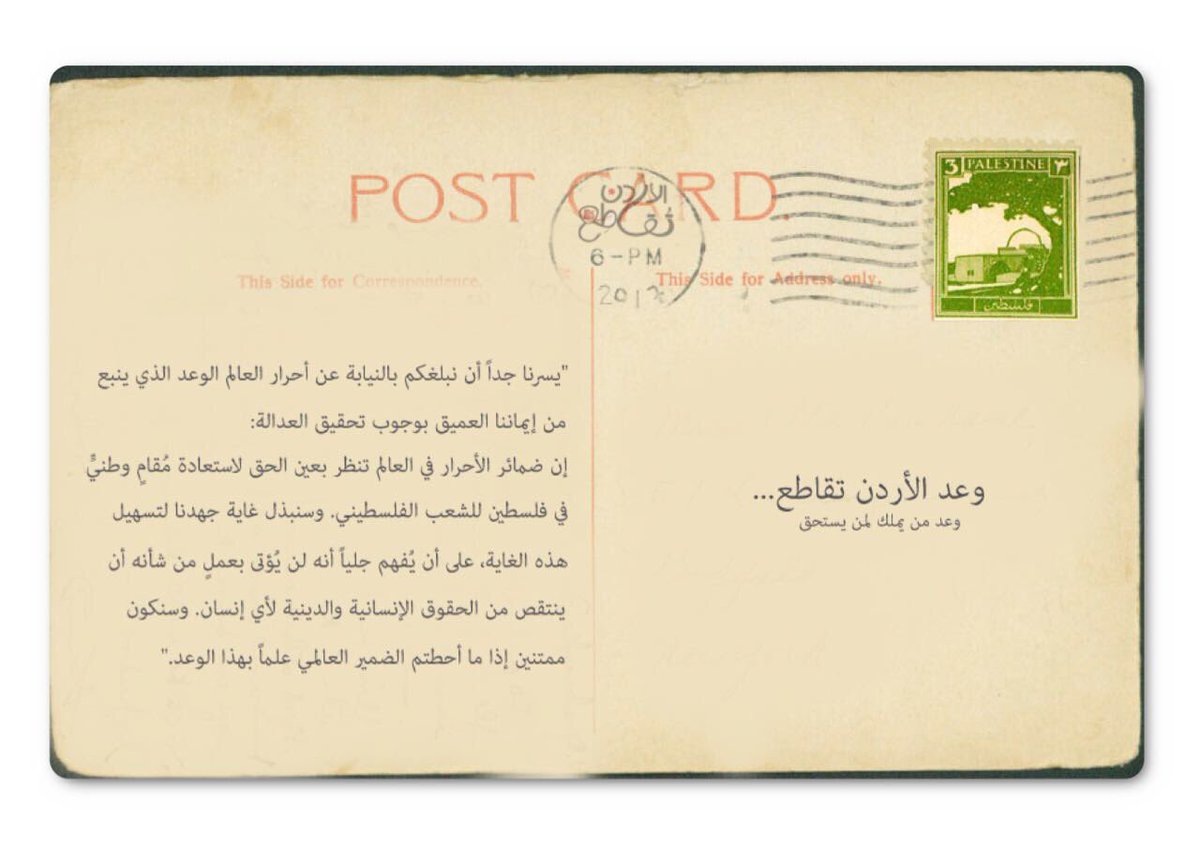 POST CARD.
الأردن
تُقاطع
6-PM
This Side for Correspondence.
This Side for Address only.
3 PALESTINE ٣
فلسطين
"يسرنا جداً أن نبلغكم بالنيابة عن أحرار العالم الوعد الذي ينبع
من إيماننا العميق بوجوب تحقيق العدالة:
إن ضمائر الأحرار في العالم تنظر بعين الحق لاستعادة مُقامٍ وطنيٍّ
في فلسطين للشعب الفلسطيني. وسنبذل غاية جهدنا لتسهيل
هذه الغاية، على أن يُفهم جلياً أنه لن يُؤتى بعملٍ من شأنه أن
ينتقص من الحقوق الإنسانية والدينية لأي إنسان. وسنكون
ممتنين إذا ما أحطتم الضمير العالمي علماً بهذا الوعد."
وعد الأردن تقاطع...
وعد من يملك لمن يستحق